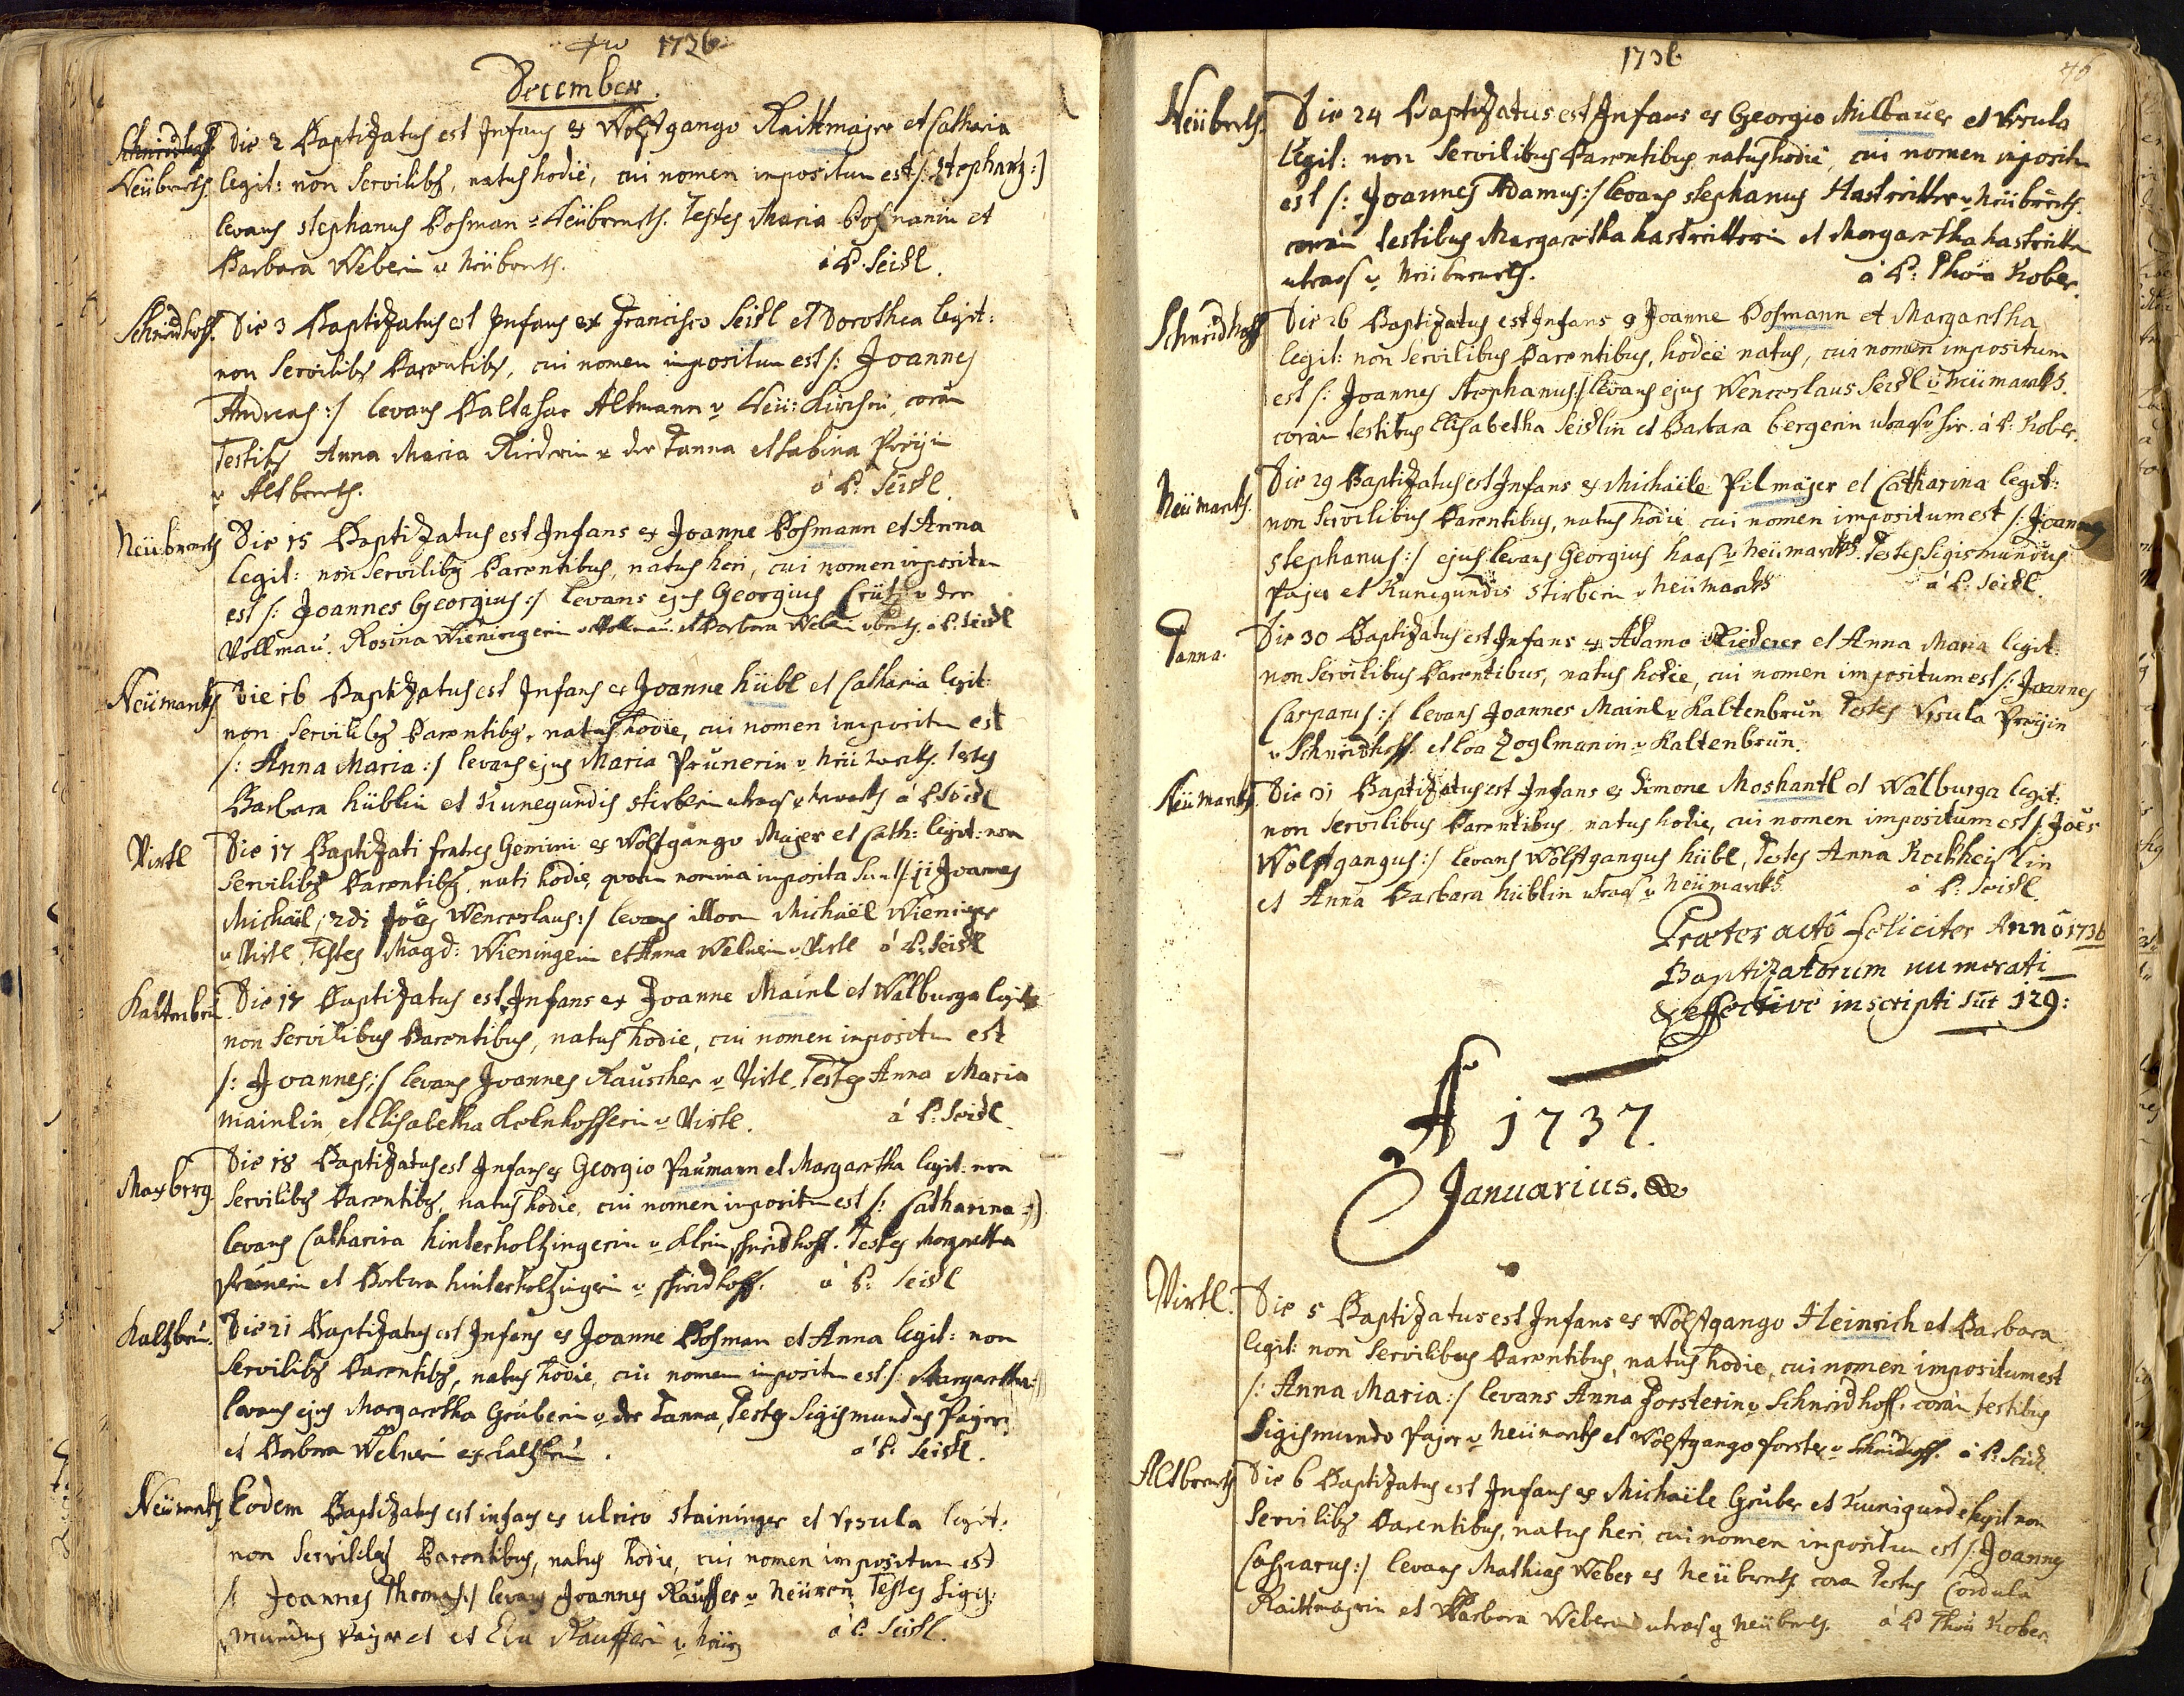 1736
December.
Schneidhoff Die 2 Baptizatus est Infans ex Wolfgango Raittmajer et Catharia
Neübrenth. legit: non Servilibg, natus hodie, cui nomen impositum est /: Stephang :/
levans Stephanus Posman v Neübrenth. Testes Maria Posmanin et
Barbara Weberin v Neübrenth. à P. Seidl.
Schneidhoff. Die 3 Baptizatus est Infans ex Francisco Seidl et Dorothea legit:
non Servilibg Parentibg, cui nomen impositum est /: Joannes
Andreas :/ levans Baltasar Altmann v Neü: Kirchen, corã
Testibg Anna Maria Riederin v der Tanna et Sabina Preÿin
v Altbrenth. à P: Seidl.
Neübrenth Die 15 Baptizatus est Infans ex Joanne Posmann et Anna
legit: non Servilibg Parentibus, natus heri, cui nomen impositum
est /: Joannes Georgius :/ levans ejus Georgius v der
Vollmau. Rosina Wieningerin v Vollmau. et Barbara Weberin à P. Seidl
Neümarkh Die 16 Baptizatus est Infans ex Joanne Hübl et Catharia legit:
non Servilibg Parentibg, natus hodie, cui nomen impositum est
/: Anna Maria :/ levans ejus Maria Prunerin v Neümarkh. Testes
Barbara Hüblin et Kunegundis Stirberin utraq v Neümarkh à P. Seidl
Virtl Die 17 Baptizati fratres Gemini ex Wolfgango Majer et Cath: legit: non
Servilibg Parentibg, nati hodie, quorum nomina imposita sunt /: 1i Joannes
Michael, 2di Joes Wenceslaus :/ levans illorum Michaël Wieninger
v Virtl, Testes Magd: Wieningerin et Anna Webrin v Virtl à P. Seidl
Kaltenbrun. Die 17 Baptizatus est Infans ex Joanne Mainl et Walburga legit:
non Servilibus Parentibus, natus hodie, cui nomen impositum est
/: Joannes :/ levans Joannes Rauscher v Virtl. Testes Anna Maria
Mainlin et Elisabetha Kolnhofferin v Virtl. à P: Seidl.
Maxberg. Die 18 Baptizatus est Infans ex Georgio Paumann et Margaretha legit: non
Servilibg Parentibg, natus hodie, cui nomen impositum est /: Catharina :/
levans Catharina Hinterholtzingerin v Klein Schneidhoff. Testes Margaretha
Prunerin et Barbara Hinterholtzingerin v Schneidhoff. à P: Seidl
Kaltzbrun. Die 21 Baptizatus est Infans ex Joanne Posman et Anna legit: non
Servilibg Parentibg, natus hodie, cui nomen impositum est /: Margaretha :/
levans ejus Margaretha Gruberin v der Tanna, Testes Sigismundus Pajer
et Barbara Webrin ex Kaltzbrun. à P: Seidl.
Neümarkh Eodem Baptizatus est infans ex Ulrico Staininger et Ursula legit:
non Servilibus Parentibus, natus hodie, cui nomen impositum est
/: Joannes Thomas :/ levans Joannes Rauffer v Testes Sigis:
mundus Pajer et Eva Raufferin v à P. Seidl.
1736
40
Neübrth. Die 24 Baptizatus est Infans ex Georgio Milbauer et Ursula
legit: non Servilibus Parentibus natus hodie, cui nomen impositum
est /: Joannes Adamus :/ levans Stephanus Hastreitter v Neübrenth.
coram testibus Margaretha Hastreitterin et Margaretha Hastreitterin
utraq v Neübrenth. à P: Thoma Kober.
Schneidhoff Die 26 Baptizatus est Infans ex Joanne Posmann et Margaretha
legit: non Servilibus Parentibus, hodie natus, cui nomen impositum
est /: Joannes Stephanus :/ levans ejus Wenceslaus Seidl v Neümarkh.
coram testibus Elisabetha Seidlin et Barbara Bergerin utraq. à P: Kober.
Neümarkh. Die 29 Baptizatus est Infans ex Michaële Pilmajer et Catharina legit:
non Servilibus Parentibus, natus hodie cui nomen impositum est /: Joannes
Stephanus :/ ejus levans Georgius Haas v Neümarkh. Testes Sigismundus
Pajer et Kunegundis Stirberin v Neümarkh à P: Seidl.
Tanna. Die 30 Baptizatus est Infans ex Adamo Riederer et Anna Maria legit:
non Servilibus Parentibus, natus hodie, cui nomen impositum est /: Joannes
Casparus :/ levans Joannes Mainl v Kaltenbrun Testes Ursula Preÿin
v Schneidhoff. et Eva Zoglmanin v Kaltenbrun.
Neümarkh Die 31 Baptizatus est Infans ex Simone Moshantl et Walburga legit:
non Servilibus Parentibus, natus hodie, cui nomen impositum est /: Joës
Wolfgangus :/ levans Wolfgangus Hübl, Testes Anna Kockheislin
et Anna Barbara Hüblin utraq v Neümarkh. à P: Seidl.
Præter acto feliciter Anno 1736
Baptizatorum numerati
& effective inscripti sūt 129:
A 1737.
Januarius.
Virtl. Die 5 Baptizatus est Infans ex Wolfgango Heinrich et Barbara
legit: non Servilibus Parentibus natus hodie, cui nomen impositum est
/: Anna Maria :/ levans Anna Forsterin v Schneidhoff. coram testibus
Sigismundo Pajer v Neümarkh et Wolfgango Forster v Schneidhoff. à P: Seidl.
Altbrenth Die 6 Baptizatus est Infans ex Michaële Gruber et Kunigunde legit non
Servilibg Parentibus, natus heri, cui nomen impositum est /: Joannes
Casparus :/ levans Mathias Weber ex Neübrenth. coram Testes Cordula
Raittmajrin et Barbara Weberin utraq ex Neübrenth. à P Thoma Kober.